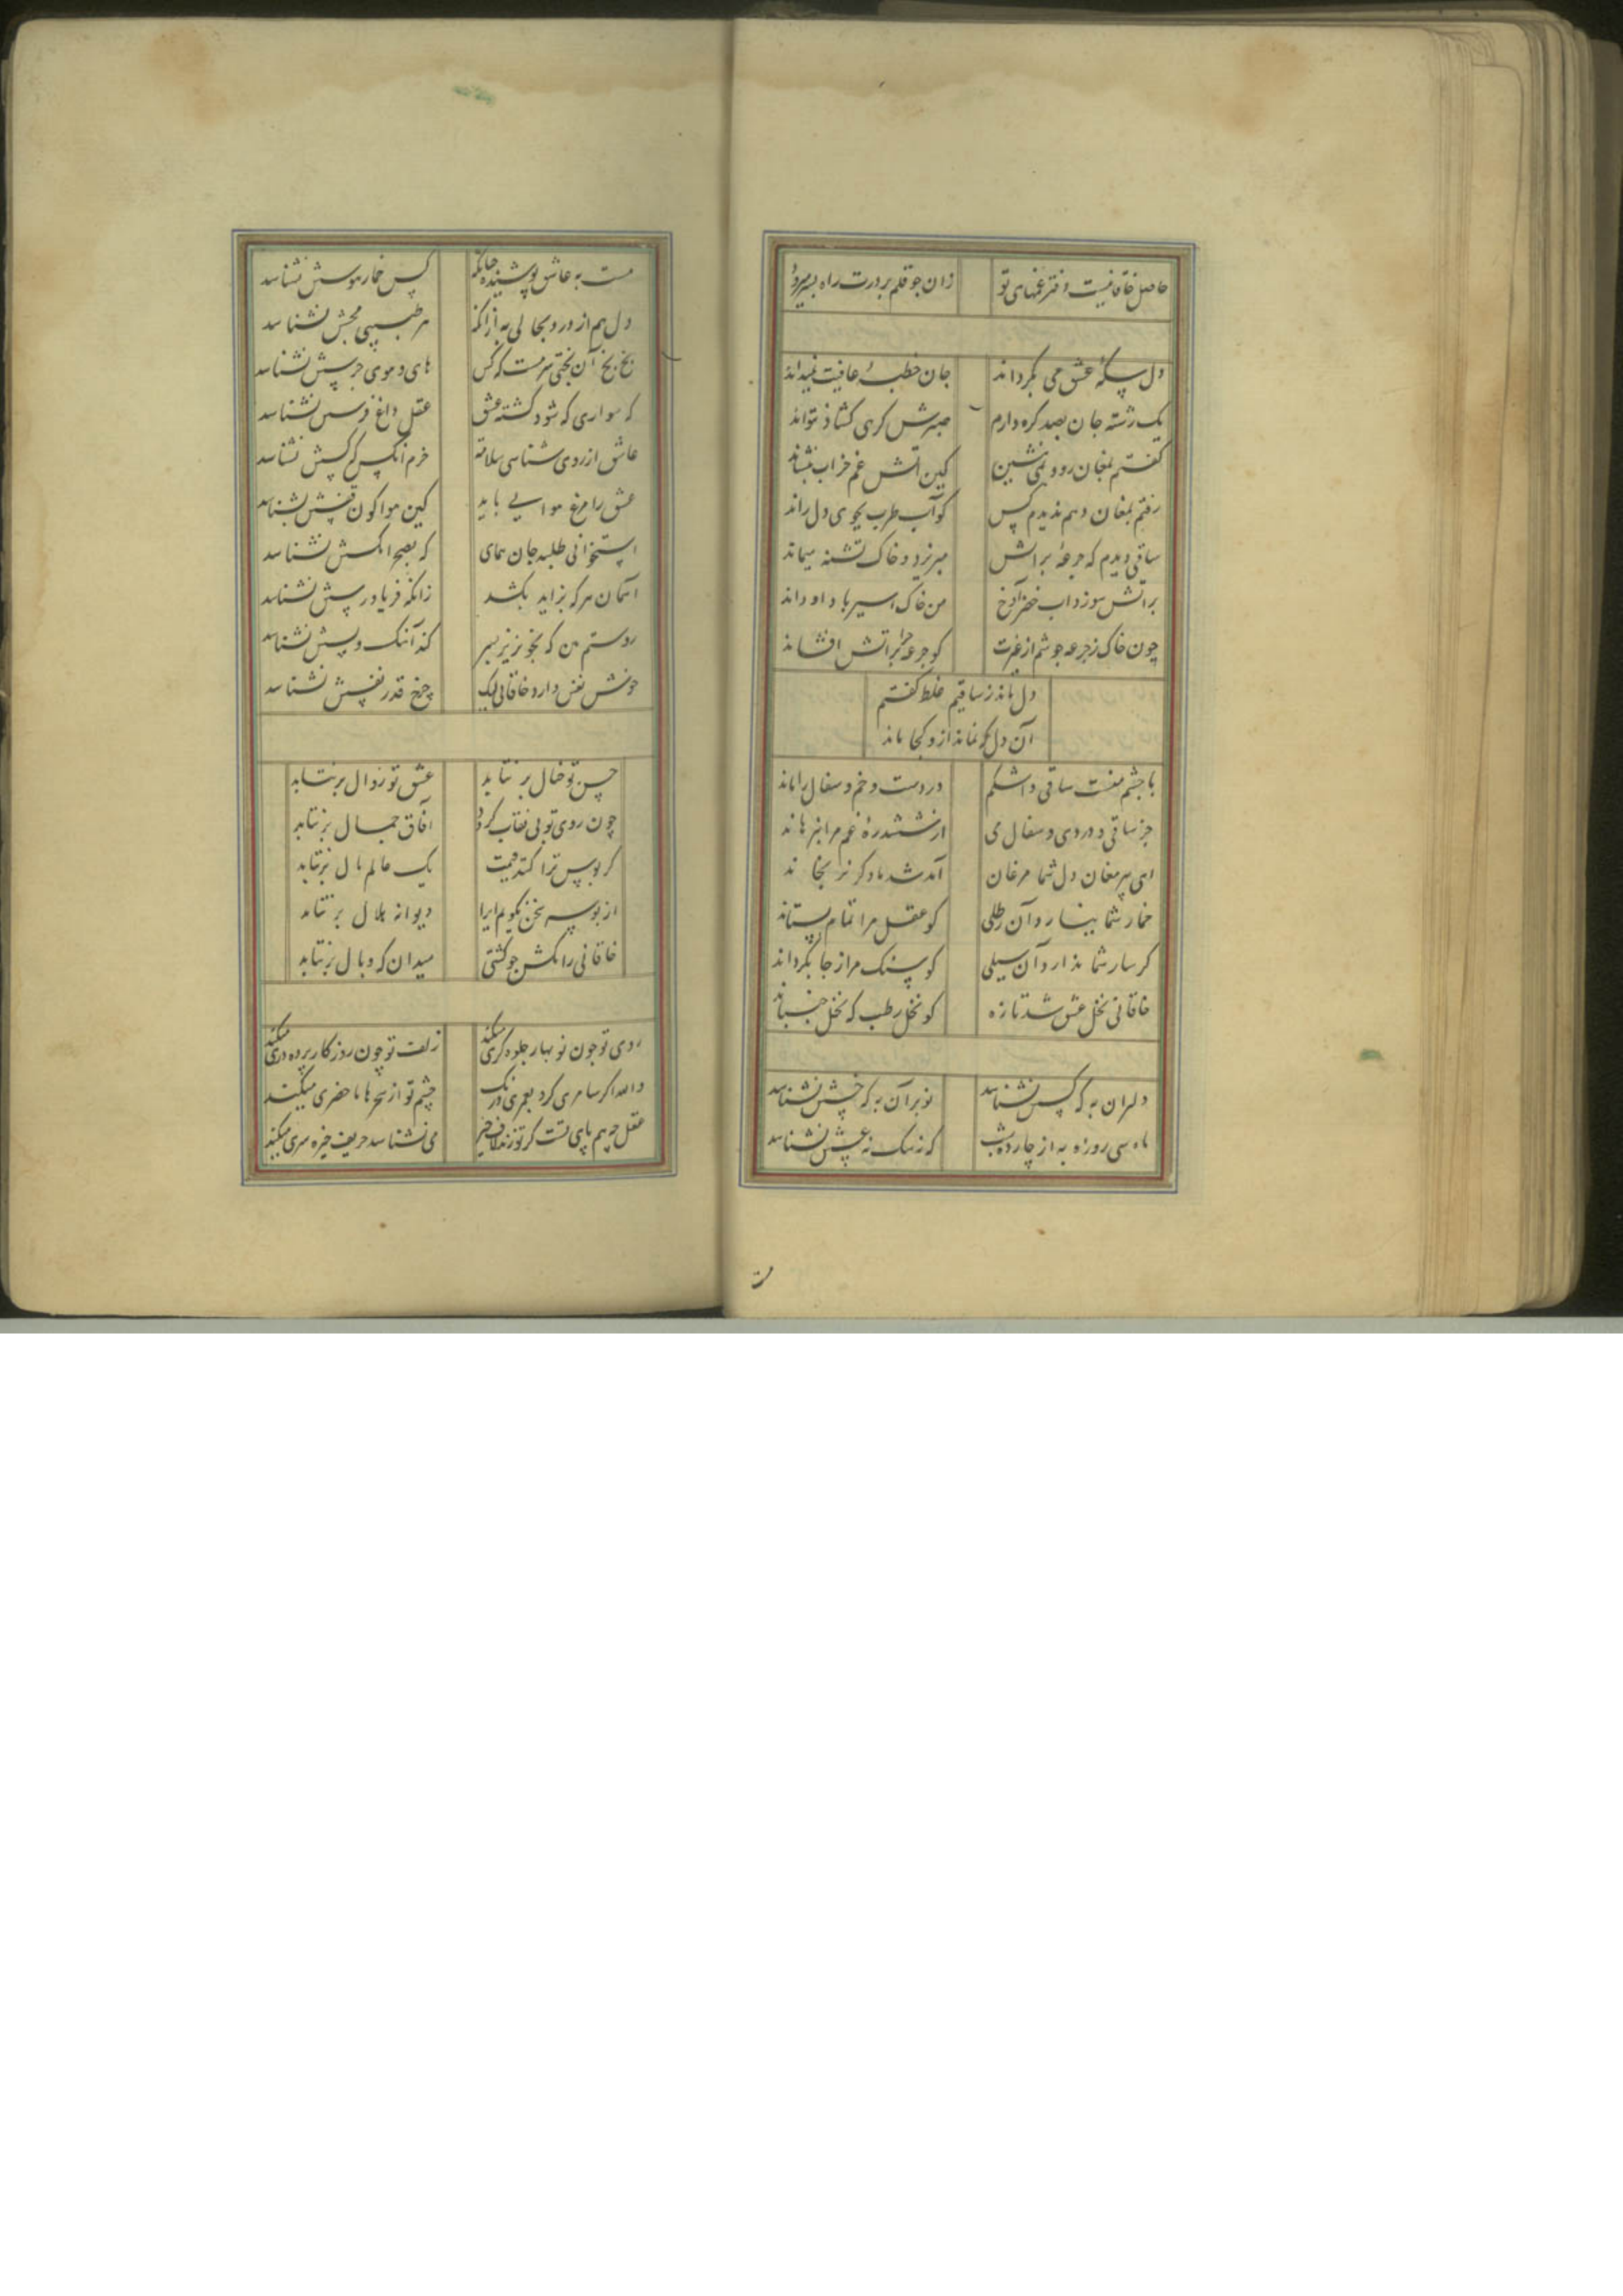 حاصل خاقانیست دفتر غمهای تو
زان چو قلم بر درت راه بسر میرود
دل سکهٔ عشق می نگرداند
جان خطبهٔ عافیت نمیداند
یک رشته جان بصد گره دارم
صبرش گرهی گشاد نتواند
گفتم بمغان رو و می نشین
کین آتش غم خراب بنشاند
رفتم بمغان و هم ندیدم کس
کو آب طرب بجوی دل راند
ساقی دیدم که جرعهٔ بر آتش
میریزد و خاک تشنه میماند
بر آتش سوزد آب خضر آوخ
من خاک اسیر باد او داند
چون خاک ز جرعه جوشم از غیرت
کو جرعه چرا بر آتش افشاند
دل ماند ز ساقیم غلط گفتم
آن دل که نماند ازو کجا ماند
با چشم منست ساقی و اشکم
دردست و خم و سفال را ماند
جز ساقی و دردی و سفال می
از ششدرهٔ غم مرا نرهاند
ای پیر مغان دل شما مرغان
آمد شد ما دگر نرنجاند
خمار شما بیارد آن رطلی
کو عقل مرا تمام بستاند
کرسار شما ندارد آن سیلی
کو سنگ مرا ز جا بگرداند
خاقانی نخل عشق شد تازه
کو نخل رطب که نخل جنباند
دلبر آن به که کسش نشناسد
نوبر آن به که خسش نشناسد
ماه سی روزه به از چارده شب
که نه سگ نه عسسش نشناسد
مست به عاشق پوشیده چنانکه
کس خمار هوسش نشناسد
دل هم از درد بجانی به ازانکه
هر طبیبی مجسش نشناسد
بخ بخ آن بختی سرمست که کس
های و هوی جرسش نشناسد
که سواری که شود کشته عشق
عقل داغ فرسش نشناسد
عاشق از روی شناسی بلاست
خرم آنکس که کسش نشناسد
عشق را مرغ هوایی باید
کین هوا کون قفسش نشناسد
استخوانی طلبد جان همای
که بصحرا مگسش نشناسد
آسمان هر که بزاید بکشد
زانکه فریادرسش نشناسد
رستم من که بخونریز پسر
کند آهنگ و پسش نشناسد
خوش نفس دارد خاقانی لیک
چرخ قدر نفسش نشناسد
حسن تو خال بر نتابد
عشق تو زوال بر نتابد
چون روی تو بی نقاب گردد
آفاق جمال بر نتابد
گر بوس ترا کنند قیمت
یک عالم مال بر نتابد
از بوسه سخن نگویم ایرا
دیوانه هلال بر نتابد
خاقانی را مکش چو کشتی
میدان که وبال بر نتابد
روی تو چون نوبهار جلوه گری میکند
زلف تو چون روزگار پرده دری میکند
والله اگر سامری کرد بعمری درنگ
چشم تو از سحرها ما حضری میکند
عقل چو بهم پای تست گر تو زند لاف خیر
می نشناسد حریف خیره سری میکند